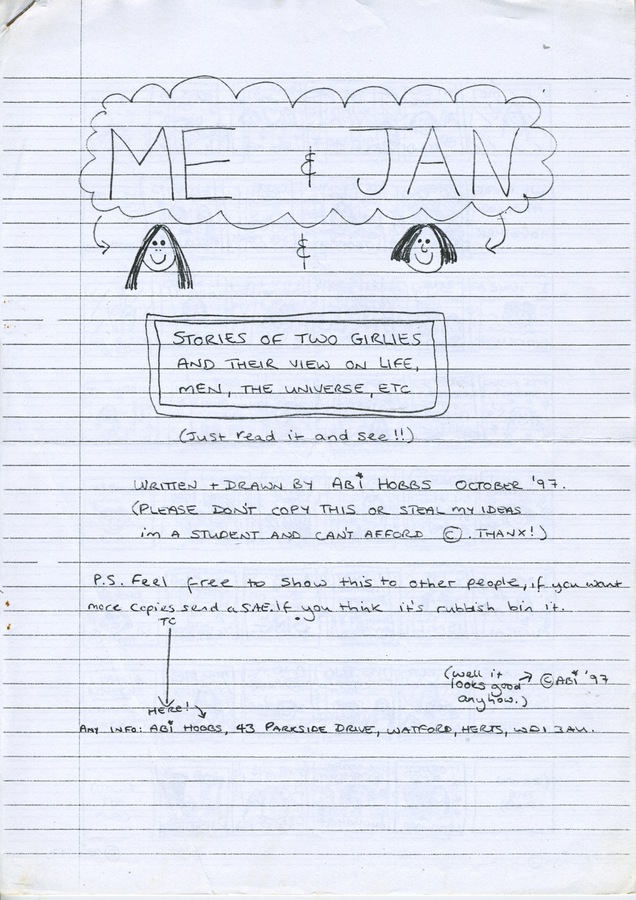 ME & JAN
&
STORIES OF TWO GIRLIES
AND THEIR VIEW ON LIFE,
MEN, THE UNIVERSE, ETC
(Just read it and see!!)
WRITTEN + DRAWN BY ABI HOBBS OCTOBER '97.
(PLEASE DON'T COPY THIS OR STEAL MY IDEAS
im A STUDENT AND CAN'T AFFORD ©. THANX!)
P.S. Feel free to show this to other people, if you want
more copies send a SAE. If you think it's rubbish bin it.
TO
HERE!
(well it
looks good
anyhow.)
© ABi '97
ANY INFO: ABi HOBBS, 43 PARKSIDE DRIVE, WATFORD, HERTS, WD1 3AU.